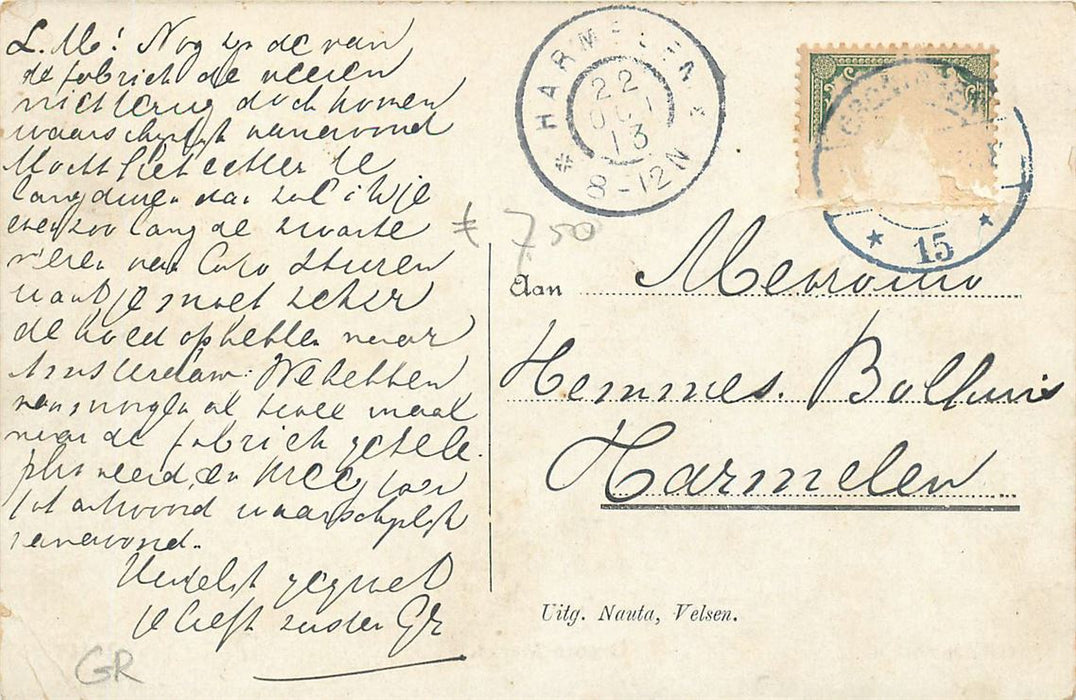 L. M! Nog zijn de van
de fabriek de veeren
niet terug doch komen
waarschijnlijk vanavond
Mocht het echter te
lang duren dan zal ik je
even zoo lang de zwarte
veeren van Caro sturen
want je moet zeker
de hoed ophebben naar
Amsterdam. We hebben
van morgen al twee maal
naar de fabriek getele-
phoneerd, en kreeg
tot antwoord waarschijnlijk
vanavond.
Hartelijk gegroet
je liefh zuster Gr
GR
HARMELEN
22
OCT
13
8-12N
15
€ 7,50
Aan Mevrouw
Hemmes. Bolhuis
Harmelen
Uitg. Nauta, Velsen.